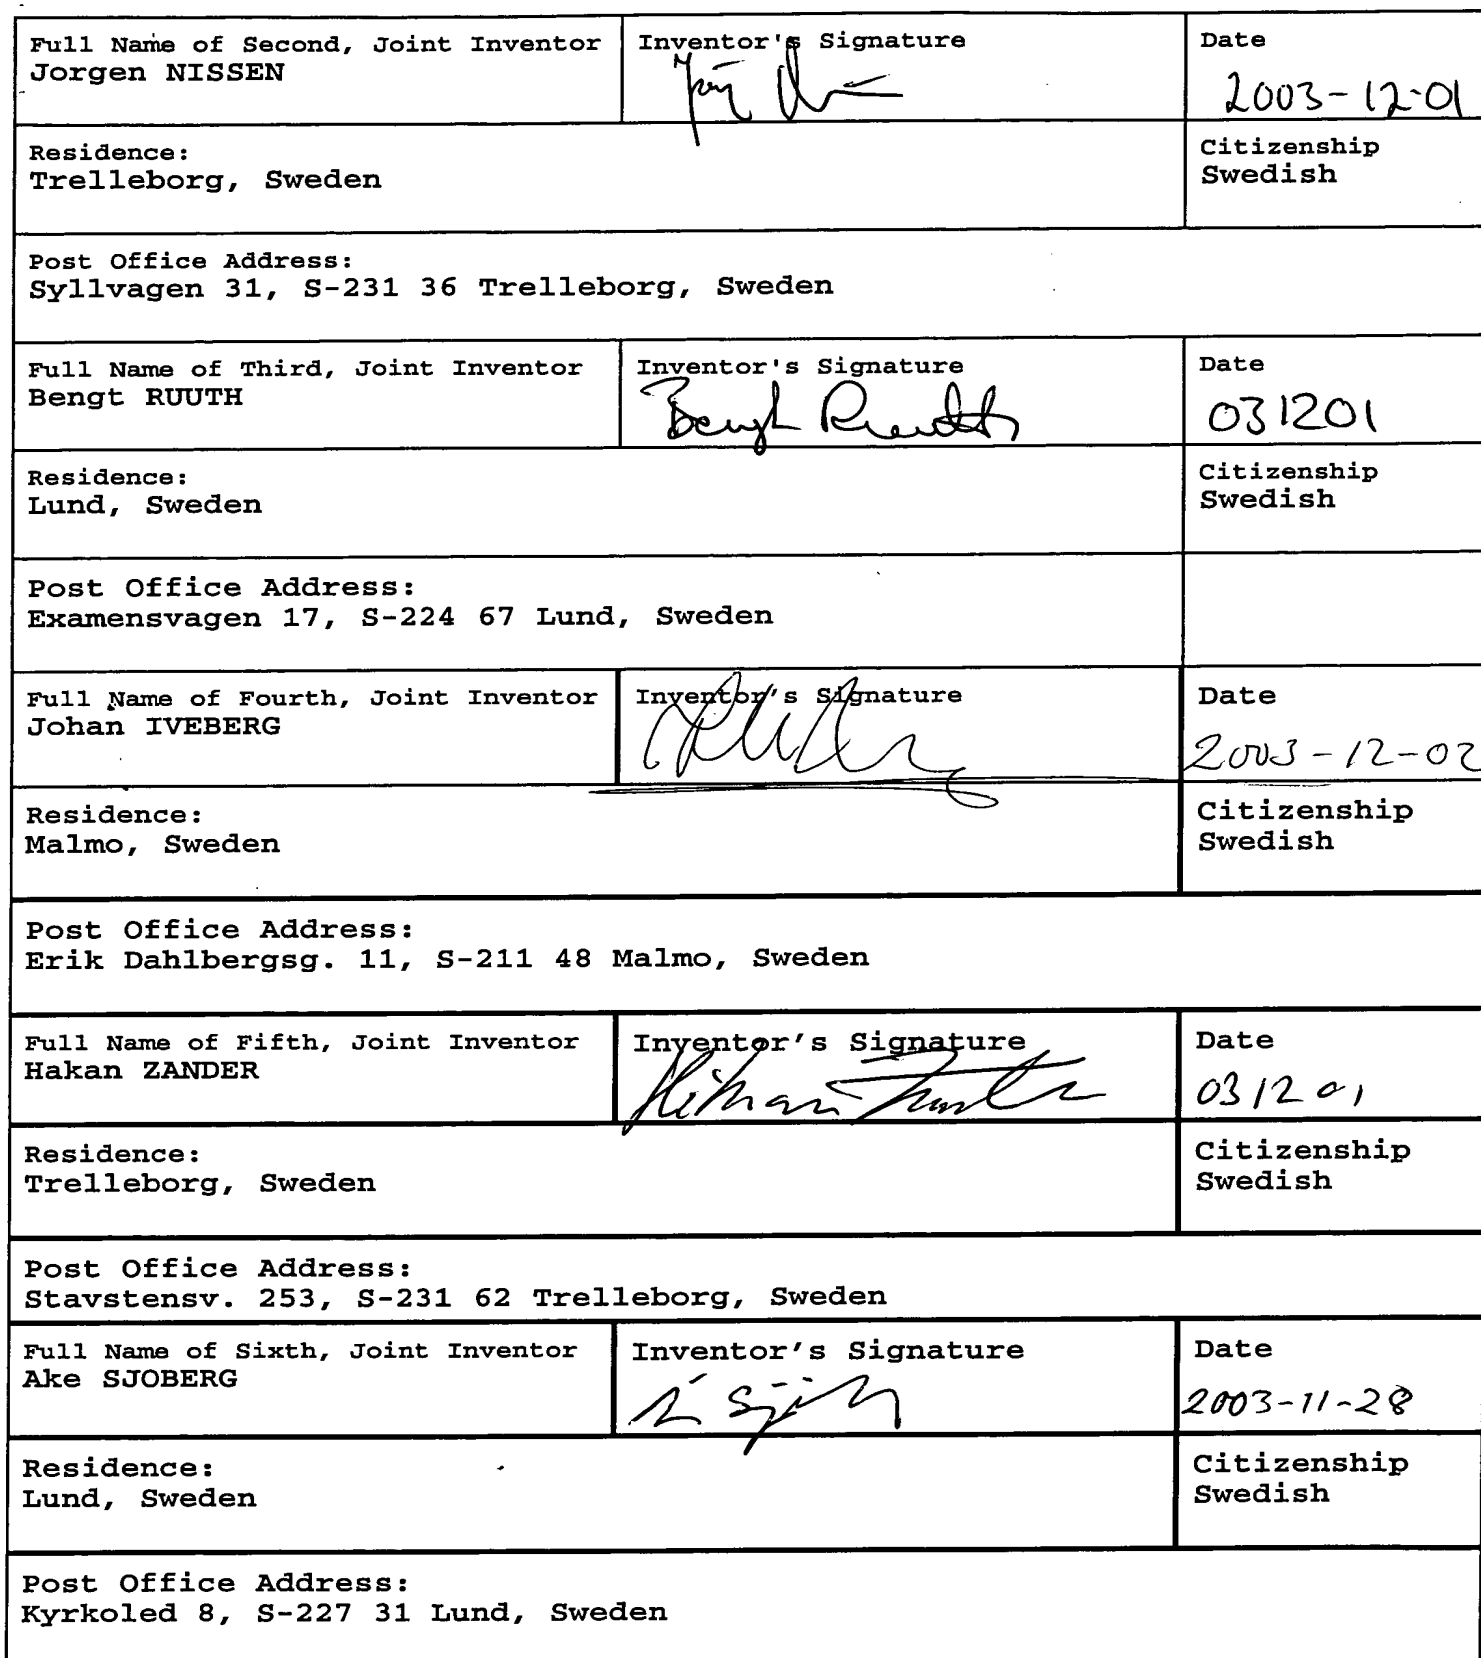 Full Name of Second, Joint Inventor
Jorgen NISSEN
Inventor's Signature
Date
2003-12-01
Residence:
Trelleborg, Sweden
Citizenship
Swedish
Post Office Address:
Syllvagen 31, S-231 36 Trelleborg, Sweden
Full Name of Third, Joint Inventor
Bengt RUUTH
Inventor's Signature
Bengt Ruuth
Date
031201
Residence:
Lund, Sweden
Citizenship
Swedish
Post Office Address:
Examensvagen 17, S-224 67 Lund, Sweden
Full Name of Fourth, Joint Inventor
Johan IVEBERG
Inventor's Signature
Date
2003-12-02
Residence:
Malmo, Sweden
Citizenship
Swedish
Post Office Address:
Erik Dahlbergsg. 11, S-211 48 Malmo, Sweden
Full Name of Fifth, Joint Inventor
Hakan ZANDER
Inventor's Signature
Date
031201
Residence:
Trelleborg, Sweden
Citizenship
Swedish
Post Office Address:
Stavstensv. 253, S-231 62 Trelleborg, Sweden
Full Name of Sixth, Joint Inventor
Ake SJOBERG
Inventor's Signature
Date
2003-11-28
Residence:
Lund, Sweden
Citizenship
Swedish
Post Office Address:
Kyrkoled 8, S-227 31 Lund, Sweden